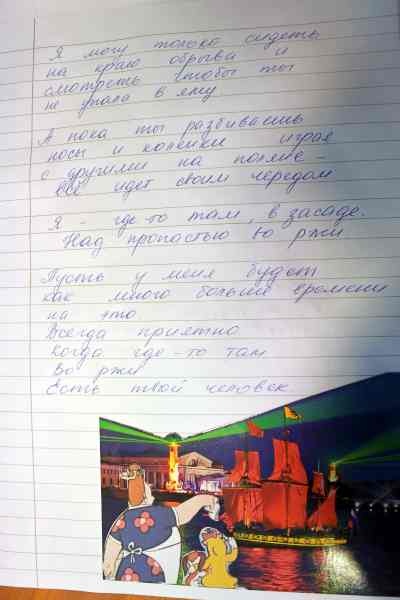 Я могу только сидеть
на краю обрыва и
смотреть чтобы ты
не упала в яму
А пока ты разбиваешь
носы и коленки играя
с другими на поляне -
всё идет своим чередом
Я - где-то там, в засаде.
Над пропастью во ржи
Пусть у меня будет
как много больше времени
на это
Всегда приятно
Когда где-то там
Во ржи
Есть твой человек